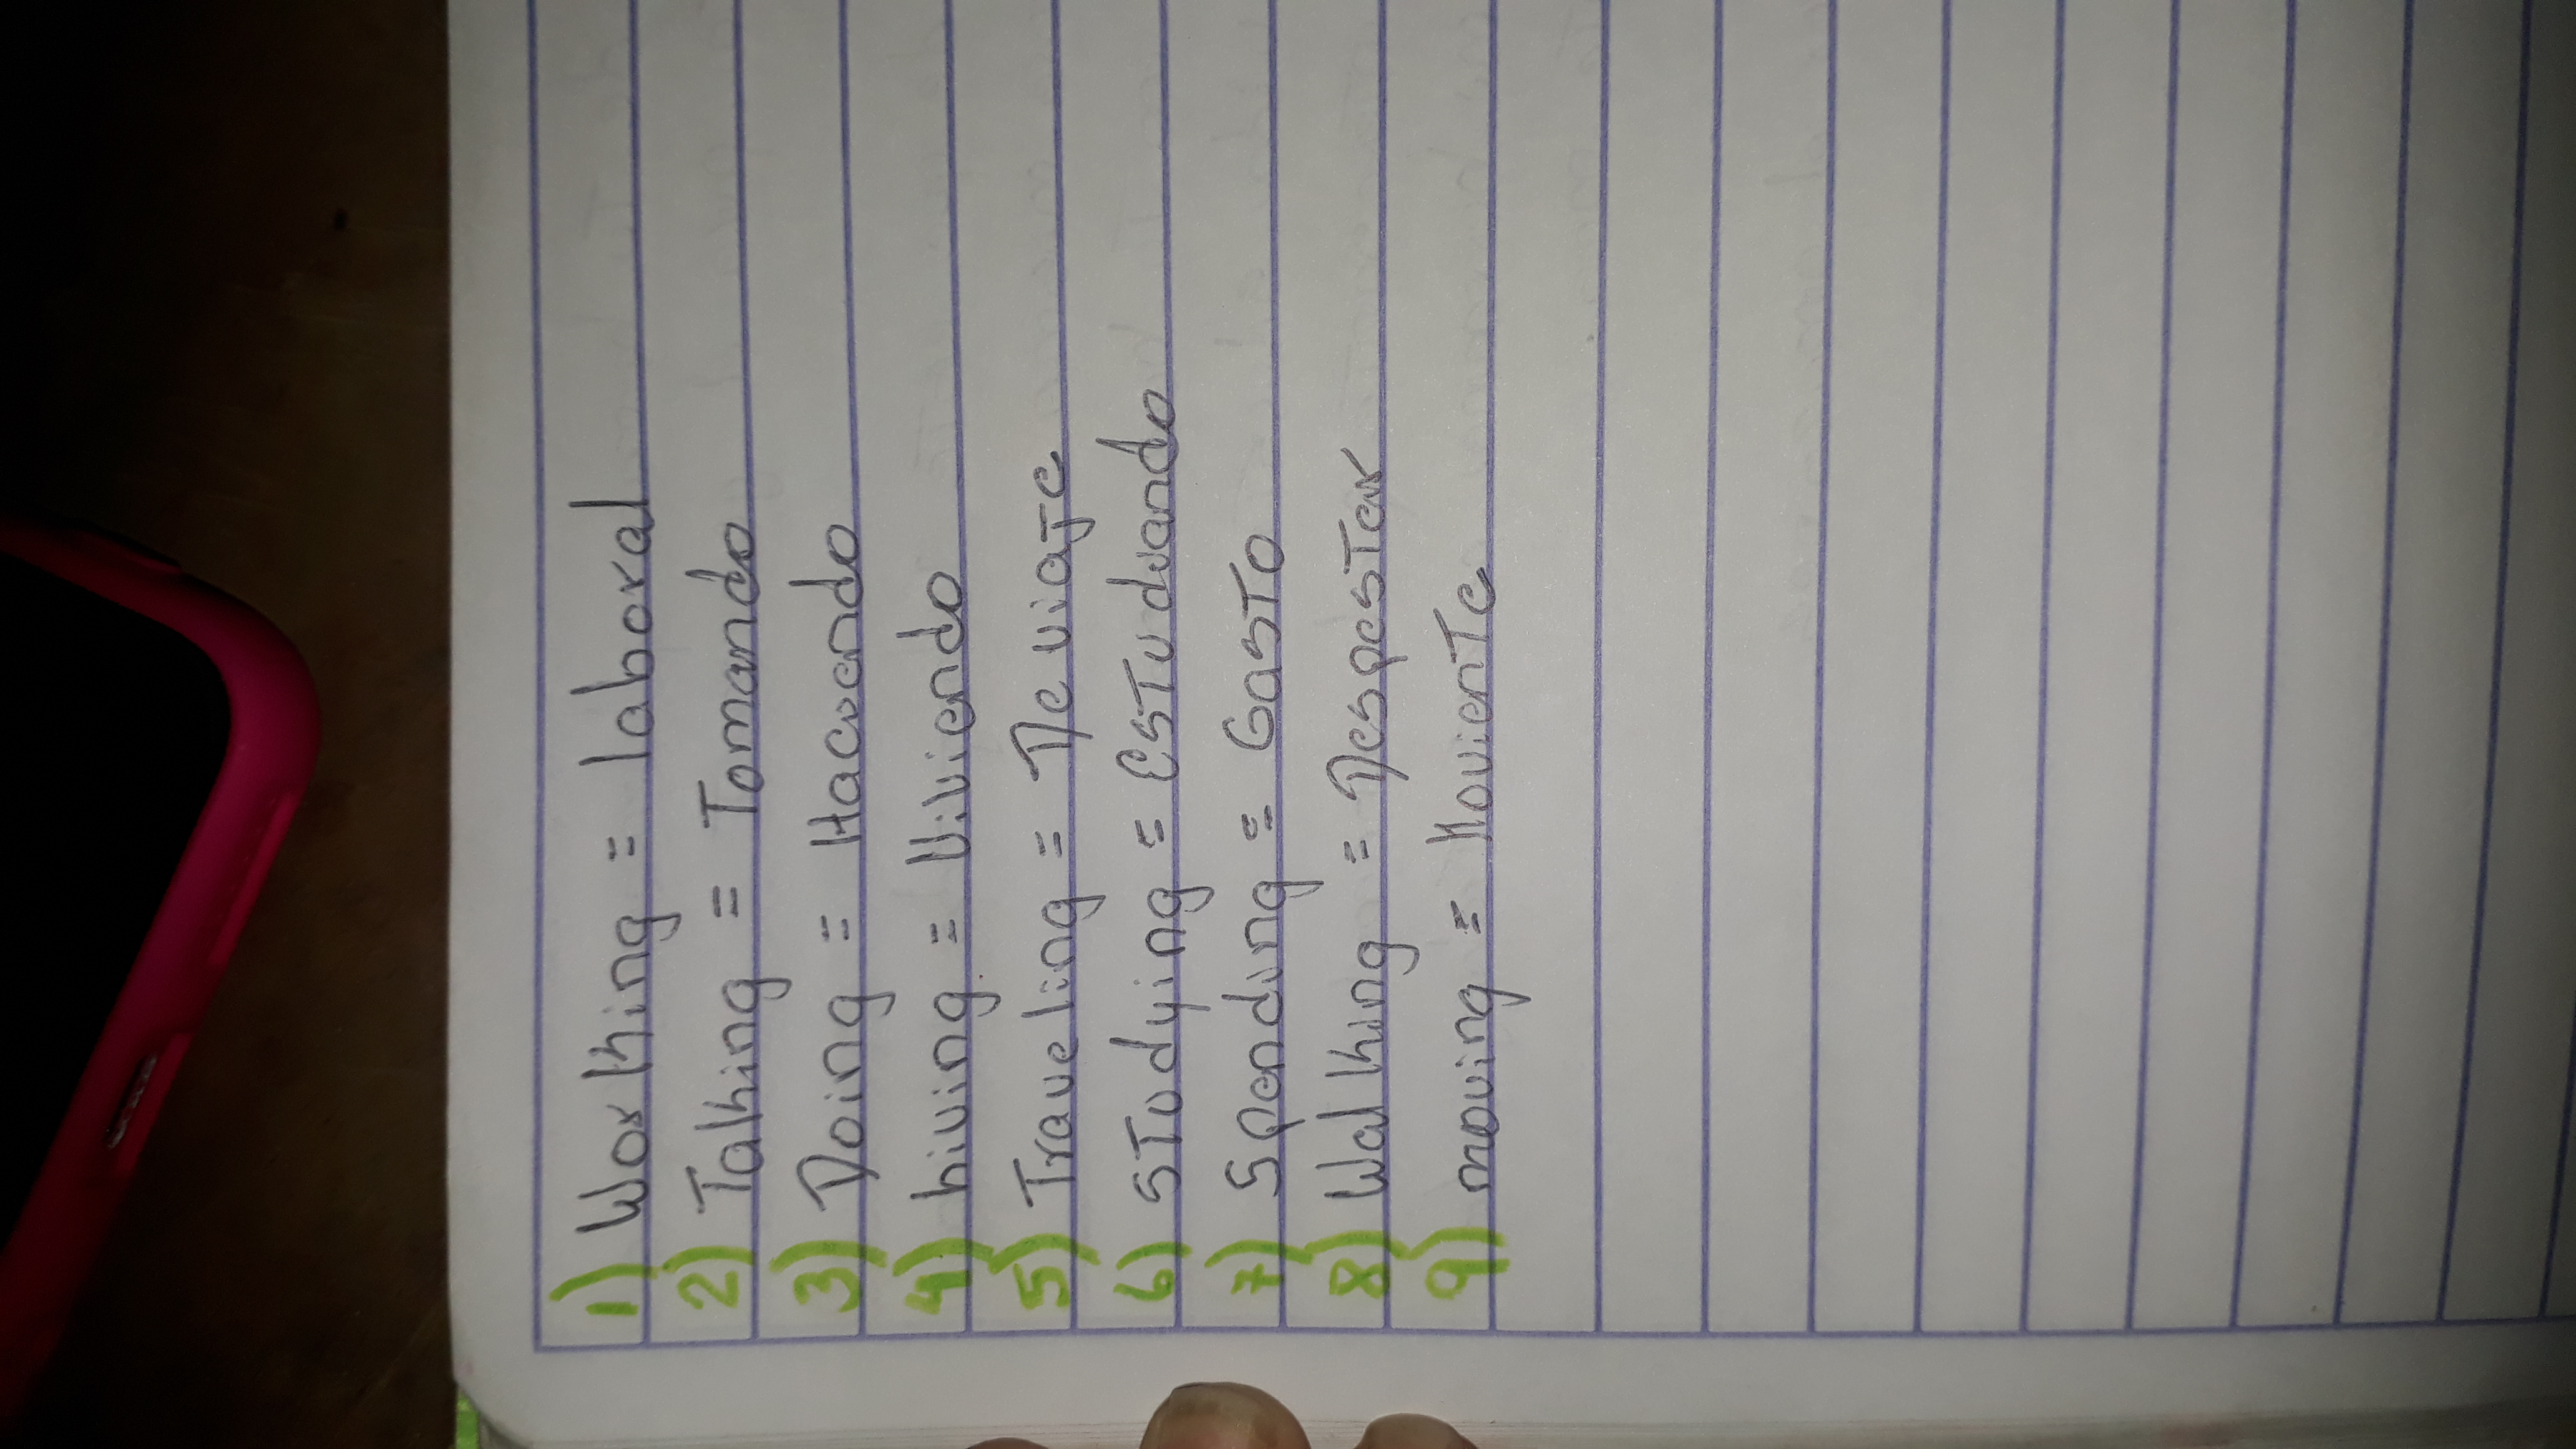 1) Working = laboral
2) Talking = Tomando
3) Doing = Haciendo
4) living = Viviendo
5) Traveling = De viaje
6) STudying = esTudiando
7) Spending = GasTo
8) Walking = DespesTar
9) moving = MovienTe